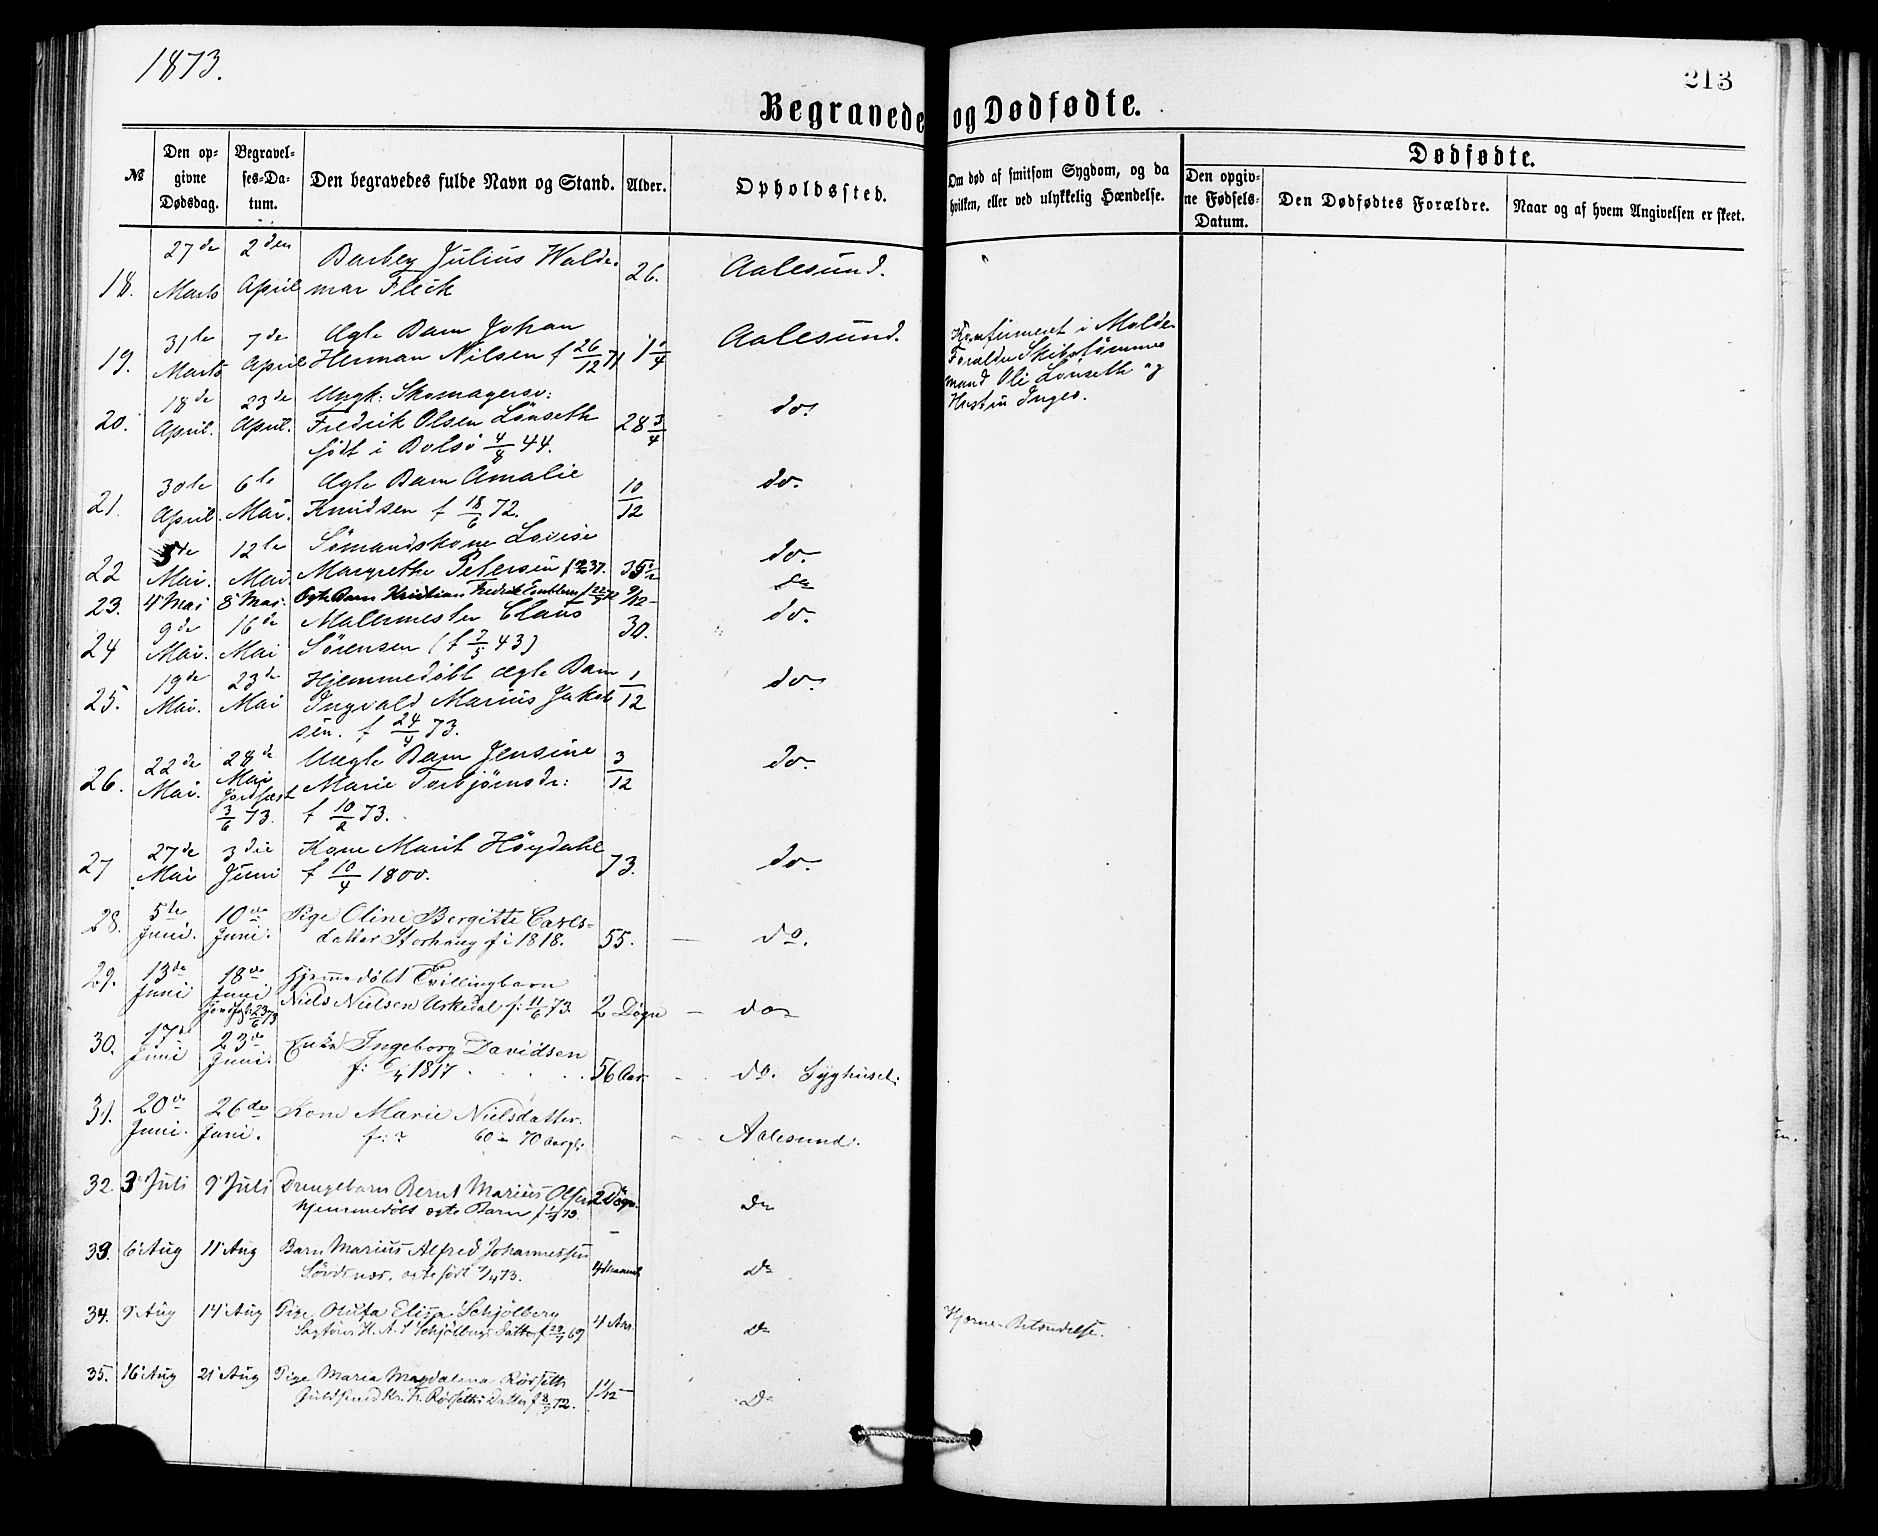 1873.
213
Begravede og Dødfødte.
№
Den opgivne Dødsdag.
Begravelses-Datum.
Den begravedes fulde Navn og Stand.
Alder.
Opholdssted.
Om død af smitsom Sygdom, og da hvilken, eller ved ulykkelig Hændelse.
Dødfødte.
Den opgivne Fødsels-Datum.
Den Dødfødtes Forældre.
Naar og af hvem Angivelsen er skeet.
18. 27de Marts 2den April Barbey Julius Walde-
mar Fleik 26. Aalesund.
19. 31te Marts 7de April Ægte Barn Johan
Herman Nilsen f 26/12 71 1 1/4 Aalesund.
20. 18de April. 23de April. Ungk: Skomagersv:
Fredrik Olsen Lönseth
født i Bolsö 4/8 44. 28 3/4 do.
Konfirmeret i Molde.
Forældre Skibstømmer
mand Ole Lönseth og
Hustru Inger.
21. 30te April. 6te Mai. Ægte Barn Amalie
Knudsen f 18/6 72. 10/12 do.
22 5te Mai. 12te Mai. Sömandskone Lovise
Margrethe Petersen 35 do.
23. 4 Mai 8 Mai. Ægte Barn Kristian Fredrik 9/12 do
24 9de Mai. 16de Mai Malermester Claus
Sörensen (f 7/5 43) 30. do.
25. 19de Mai. 23de Mai Hjemmedöbt ægte Barn
Ingvald Marius Jakob
sen. f 24/4 73. 1/12 do.
26. 22de Mai. 28de Mai Jordfæst 3/6 73. Uægte Barn Jensine
Marie Torbjörnsdr:
f 10/2 73. 3/12 do.
27 27de Mai 3die Juni Kone Marit Höydahl
f 10/4 1800. 73. do.
28. 5te Juni. 10de Juni. Pige Oline Bergitte Carls-
datter Storhaug f i 1818. 55. do.
29. 13de Juni 18de Juni Jordf. 23/6 73 Hjemmedöbt Tvillingbarn
Niels Nielsen Urkedal f: 11/6 73. 2 Døgn do
30. 17de Juni 23de Juni. Enke Ingeborg Davidsen
f: 6/4 1817 56 Aar do. Syghuset.
31. 20de Juni. 26de Juni. Kone Marie Nielsdatter.
f: ? 60 a 70 Aargl: Aalesund.
32. 3 Juli 9 Juli Drengebarn Bernt Marius Olsen
hjemmedøbt ægte Barn f 1/7 73. 2 Døgn. Do
33. 6 Aug 11 Aug Barn Marius Alfred Johannessen
ægte født /4 73. 4 Maaned Do
34. 9 Aug 14 Aug Pige Olufa Elisa Schjölberg
H. A. Schjölbergs Datter f 29/7 69 4 Aar Do
Hjerne-Betændelse.
35. 16 Aug 21 Aug Pige Maria Magdalena Rörseth
Guldsmed Rörseths Datter f 8/7 72. 1 1/12 Do